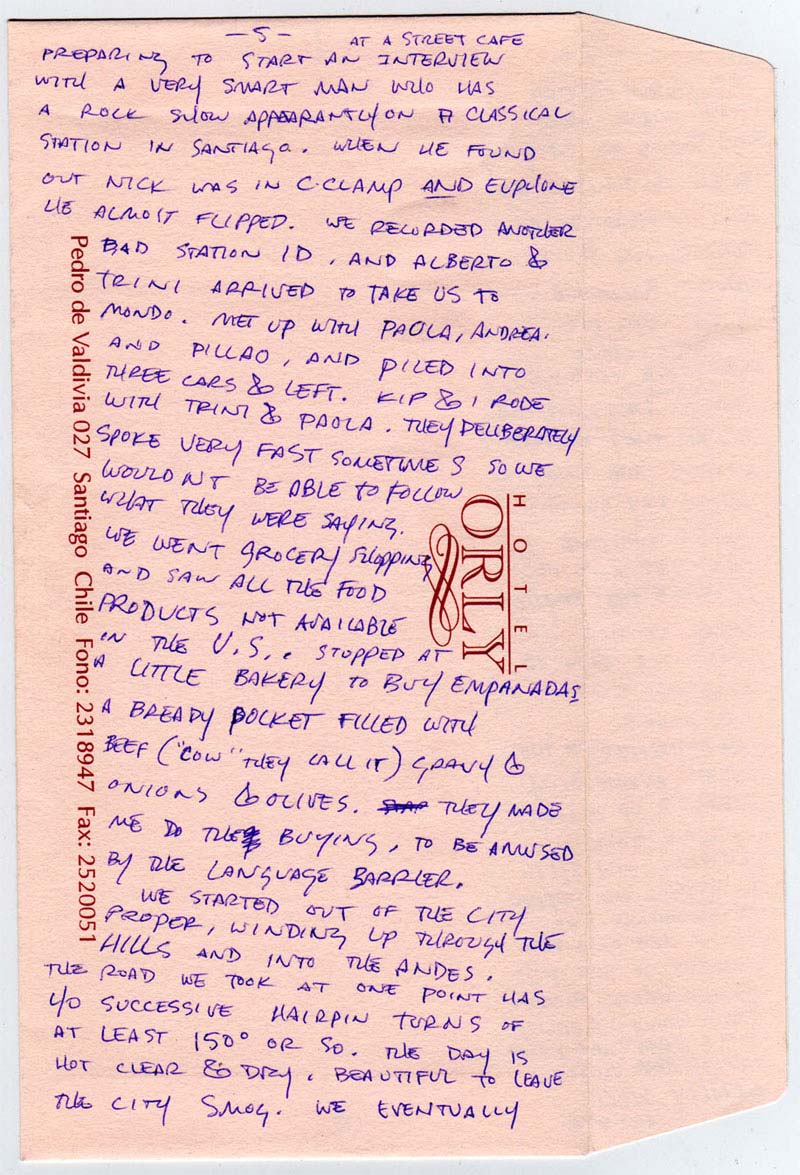 -5-
AT A STREET CAFE
PREPARING TO START AN INTERVIEW
WITH A VERY SMART MAN WHO HAS
A ROCK SHOW APPEARANTLY ON A CLASSICAL
STATION IN SANTIAGO. WHEN HE FOUND
OUT NICK WAS IN C-CLAMP AND EUPHONE
HE ALMOST FLIPPED. WE RECORDED ANOTHER
BAD STATION ID, AND ALBERTO &
TRINI ARRIVED TO TAKE US TO
MONDO. MET UP WITH PAOLA, ANDREA.
AND PILLAO, AND PILED INTO
THREE CARS & LEFT. KIP & I RODE
WITH TRINI & PAOLA. THEY DELIBERATELY
SPOKE VERY FAST SOMETIMES SO WE
WOULDN'T BE ABLE TO FOLLOW
WHAT THEY WERE SAYING.
WE WENT GROCERY SHOPPING
AND SAW ALL THE FOOD
PRODUCTS NOT AVAILABLE
IN THE U.S.. STOPPED AT
A LITTLE BAKERY TO BUY EMPANADAS
A BREADY POCKET FILLED WITH
BEEF ("COW" THEY CALL IT) GRAVY &
ONIONS & OLIVES. THEY MADE
ME DO THE BUYING, TO BE AMUSED
BY THE LANGUAGE BARRIER.
WE STARTED OUT OF THE CITY
PROPER, WINDING UP THROUGH THE
HILLS AND INTO THE ANDES.
THE ROAD WE TOOK AT ONE POINT HAS
40 SUCCESSIVE HAIRPIN TURNS OF
AT LEAST 150° OR SO. THE DAY IS
HOT CLEAR & DRY. BEAUTIFUL TO LEAVE
THE CITY SMOG. WE EVENTUALLY
HOTEL
ORLY
Pedro de Valdivia 027 Santiago Chile Fono: 2318947 Fax: 2520051